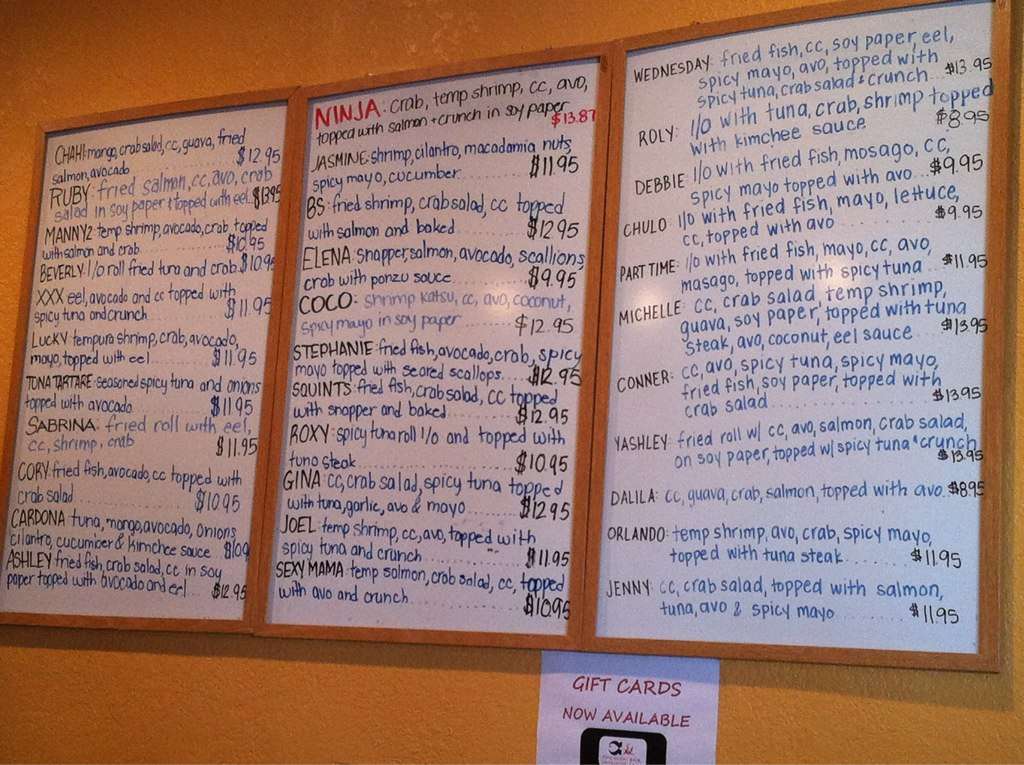 CHAHI: mango, crab salad, cc, guava, fried
salmon, avocado $12.95
RUBY: fried salmon, cc, avo, crab
salad in soy paper & topped with eel. $13.95
MANNY2 temp shrimp, avocado, crab, topped
with salmon and crab. $10.95
BEVERLY I/o roll fried tuna and crab $10.95
XXX eel, avocado and cc topped with
spicy tuna and crunch $11.95
LUCKY tempura shrimp, crab, avocado,
mayo, topped with eel $11.95
TUNA TARTARE: seasoned spicy tuna and onions
topped with avocado $11.95
SABRINA: fried roll with eel,
cc, shrimp, crab $11.95
CORY: fried fish, avocado, cc topped with
crab salad $10.95
CARDONA tuna, mango, avocado, onions
cilantro, cucumber & kimchee sauce
ASHLEY fried fish, crab salad, cc in soy
paper topped with avocado and eel $12.95
NINJA: crab, temp shrimp, cc, avo,
topped with salmon + crunch in soy paper
$13.87
JASMINE: shrimp, cilantro, macadamia nuts,
spicy mayo, cucumber $11.95
BS: fried shrimp, crab salad, cc topped
with salmon and baked $12.95
ELENA: snapper, salmon, avocado, scallions,
crab with ponzu sauce $9.95
COCO: shrimp katsu, cc, avo, coconut,
spicy mayo in soy paper $12.95
STEPHANIE: fried fish, avocado, crab, spicy
mayo topped with seared scallops $12.95
SQUINTS: fried fish, crab salad, cc topped
with snapper and baked $12.95
ROXY: spicy tuna roll I/o and topped with
tuna steak $10.95
GINA: cc, crab salad, spicy tuna topped
with tuna, garlic, avo & mayo $12.95
JOEL: temp shrimp, cc, avo, topped with
spicy tuna and crunch $11.95
SEXY MAMA: temp salmon, crab salad, cc, topped
with avo and crunch $10.95
WEDNESDAY: fried fish, cc, soy paper, eel,
spicy mayo, avo, topped with
spicy tuna, crab salad & crunch $13.95
ROLY: I/o with tuna, crab, shrimp topped
with kimchee sauce $8.95
DEBBIE I/o with fried fish, mosago, cc,
spicy mayo topped with avo $9.95
CHULO I/o with fried fish, mayo, lettuce,
cc, topped with avo $9.95
PART TIME: I/o with fried fish, mayo, cc, avo,
masago, topped with spicy tuna $11.95
MICHELLE: cc, crab salad, temp shrimp,
guava, soy paper, topped with tuna
steak, avo, coconut, eel sauce $13.95
CONNER: cc, avo, spicy tuna, spicy mayo,
fried fish, soy paper, topped with
crab salad $13.95
YASHLEY: fried roll w/ cc, avo, salmon, crab salad,
on soy paper, topped w/ spicy tuna & crunch
$13.95
DALILA: cc, guava, crab, salmon, topped with avo $8.95
ORLANDO: temp shrimp, avo, crab, spicy mayo,
topped with tuna steak $11.95
JENNY: cc, crab salad, topped with salmon,
tuna, avo & spicy mayo $11.95
GIFT CARDS
NOW AVAILABLE